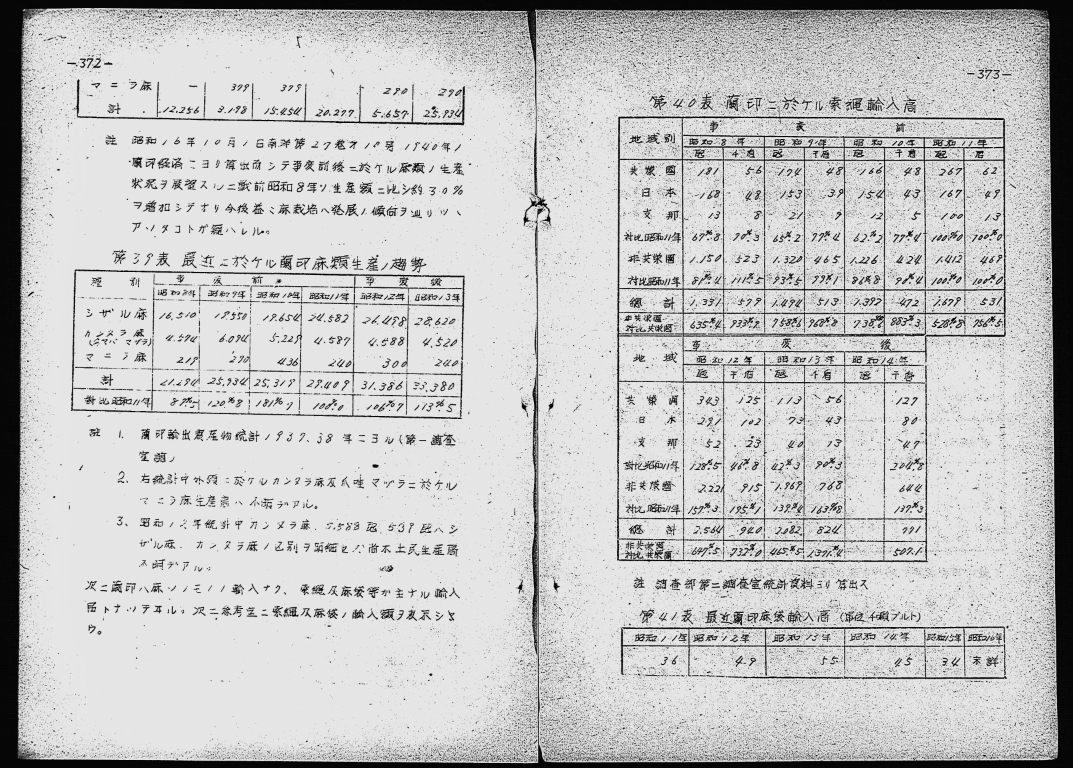 —372—
マニラ麻 — 399 399 290 290
計 12.256 3.198 15.454 20.277 5.657 25.934
註 昭和16年10月1日南洋第27巻オ10号1940年ノ
蘭印経済ニヨリ算出而シテ事変前後ニ於ケル麻類ノ生産
状況ヲ展望スルニ戦前昭和8年ノ生産類ニ比シ約30%
ヲ増加シテオリ今後益々麻栽培ハ発展ノ傾向ヲ辿リツヽ
アノタコトガ窺ハレル。
第39表 最近ニ於ケル蘭印麻類生産ノ趨勢
種別 事変前 事変後
昭和8年 昭和9年 昭和10年 昭和11年 昭和12年 昭和13年
シザル麻 16,510 19550 19.654 24.582 26.498 28,620
カンタラ麻 4.594 6.094 5.229 4.587 4.588 4.520
マニラ麻 219 290 436 240 300 240
計 21.294 25,934 25,319 29.409 31.386 33,380
対比昭和11年
註 1. 蘭印輸出農産物統計1937.38年ニヨル(第一調査
室調)
2. 右統計中外領ニ於ケルカンタラ麻及爪哇マヅラニ於ケル
マニラ麻生産高ハ不詳デアル。
3. 昭和12年統計中カンタラ麻、5.588瓲、539瓲ハシ
ザル麻、カンタラ麻ノ区別ヲ
デアル。
次ニ蘭印ハ麻ソノモノノ輸入ナク、索縄及麻袋等が主ナル輸入
品トナツテヰル。次ニ参考迄ニ索縄及麻袋ノ輸入額ヲ表示シヨ
ウ。
—373—
第40表 蘭印ニ於ケル索縄輸入高
地域別 事変前
昭和8年 昭和9年 昭和10年 昭和11年
瓲 千盾 瓲 千盾 瓲 千盾 瓲 盾
共栄圏 181 56 174 48 166 48 267 62
日本 168 48 153 39 154 43 167 49
支那 13 8 21 9 12 5 100 13
対比昭和11年 67%.8 90%.3 65%.2 77%.4 62%.2 77%.4 100%.0 100%.0
非共栄圏 1.150 523 1.320 465 1.226 424 1.412 469
対比昭和11年 81%.4 111%.5 93%.5 99%.1 86%.8 90%.4 100%.0 100%.0
総計 1.331 579 1.494 513 1.392 472 1.679 531
非共栄圏
対比共栄圏 635%.4 933%.9 758%.6 968%.8 738%.6 883%.3 528%.8 756%.5
地域 事変後
昭和12年 昭和13年 昭和14年
瓲 千盾 瓲 千盾 瓲 千盾
共栄圏 343 125 113 56 127
日本 291 102 73 43 80
支那 52 23 40 13 47
対比昭和11年 42%.3 90%.3 204%.8
非共栄圏 2.221 915 1.969 768 644
対比昭和11年 157%.3 195%.1 139%.4 163%.8 137%.3
総計 2.564 940 2.082 824 771
非共栄圏
対比共栄圏 507.1
註 調査部第二調査室統計資料ヨリ算出ス
第41表 最近蘭印麻袋輸入高 (単位 千瓲ブルト)
昭和11年 昭和12年 昭和13年 昭和14年 昭和15年 昭和16年
36 49 55 45 34 未詳